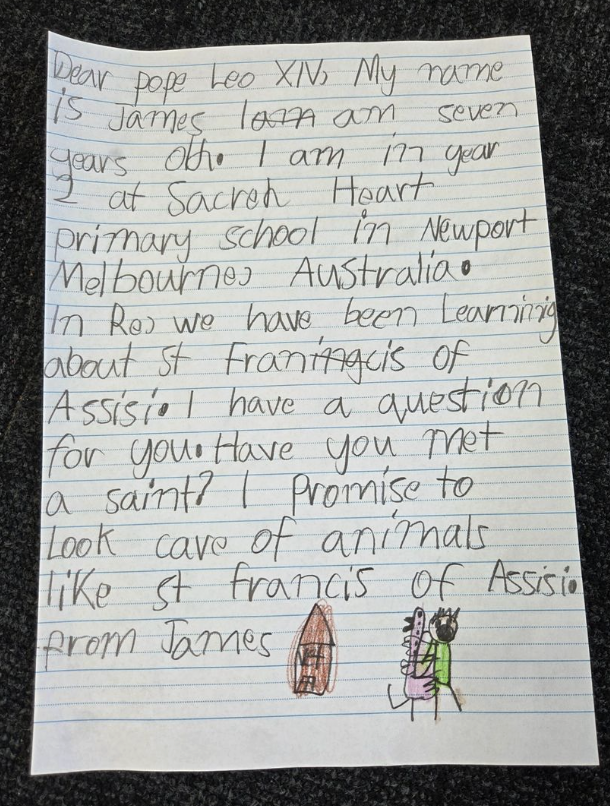 Dear pope Leo XIV, My name
is James I am am seven
years old. I am in year
2 at Sacred Heart
primary school in Newport
Melbourne, Australia.
In Re, we have been Learning
about st Franingcis of
Assisi. I have a question
for you. Have you met
a saint? I Promise to
Look care of animals
like st francis of Assisi.
from James